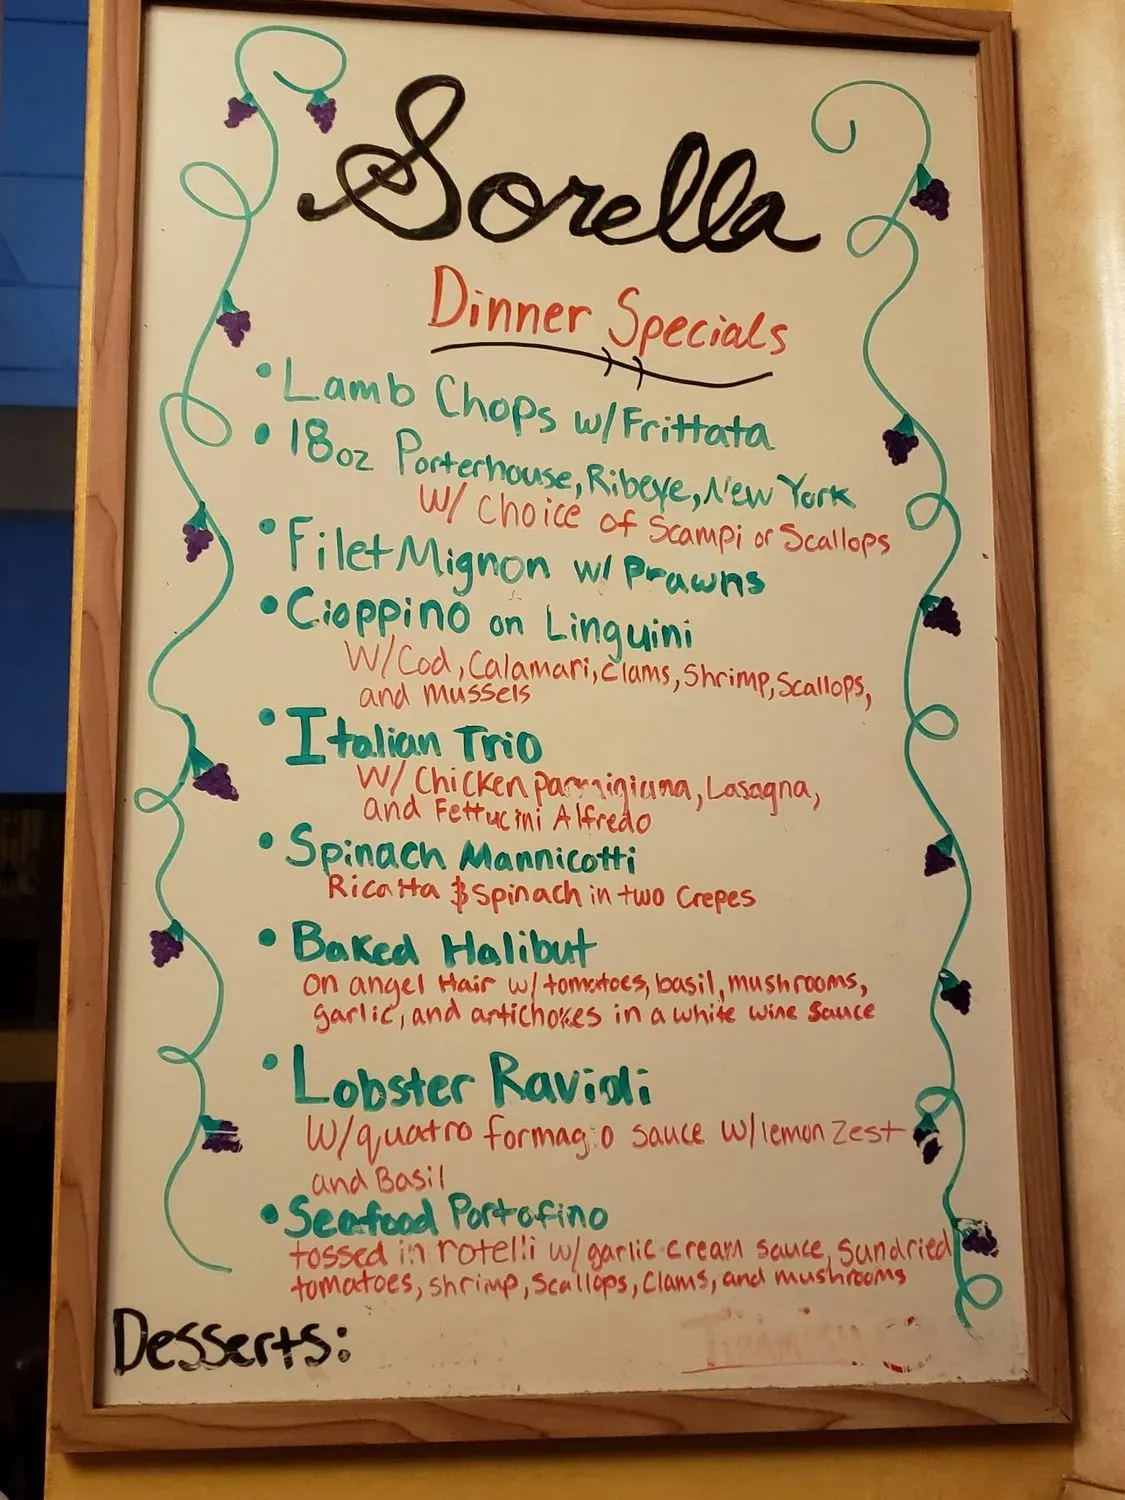 Sorella
Dinner Specials
• Lamb Chops w/Frittata
• 18oz Porterhouse, Ribeye, New York
W/ Choice of Scampi or Scallops
• Filet Mignon w/ Prawns
• Cioppino on Linguini
W/Cod, Calamari, Clams, Shrimp, Scallops,
and mussels
• Italian Trio
W/ Chicken parmigiana, Lasagna,
and Fettucini Alfredo
• Spinach Mannicotti
Ricotta & Spinach in two Crepes
• Baked Halibut
on angel Hair w/ tomatoes, basil, mushrooms,
garlic, and artichokes in a white wine sauce
• Lobster Ravioli
W/quatro formagio sauce w/lemon zest
and Basil
• Seafood Portofino
tossed in rotelli w/garlic cream sauce, sundried
tomatoes, shrimp, scallops, clams, and mushrooms
Desserts: